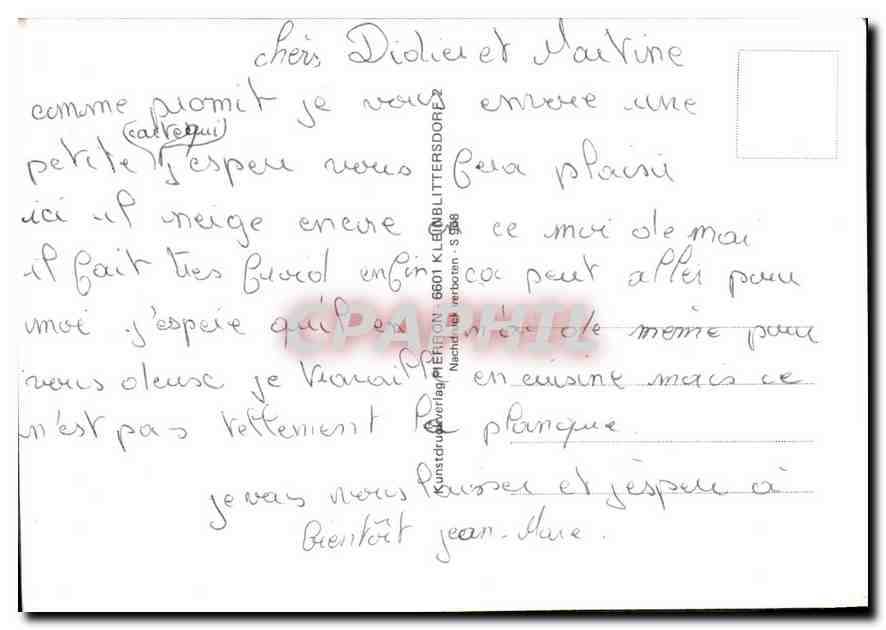 chers Didier et Martine
comme promit je vous envoie une
(carte qui)
petite j'espere vous fera plaisir
ici il neige encore en ce moi de mai
il fait tres froid enfin ca peut aller pour
moi j'espere qu'il en de même pour
vous deux je travaille en cuisine mais ce
n'est pas tellement la planque
je vais vous laisser et j'espere à
bientôt jean-Marc.
Kunstdruckverlag PIERRON - 6601 KLEINBLITTERSDORF 2
Nachdruck verboten - S 958
CPAPHIL